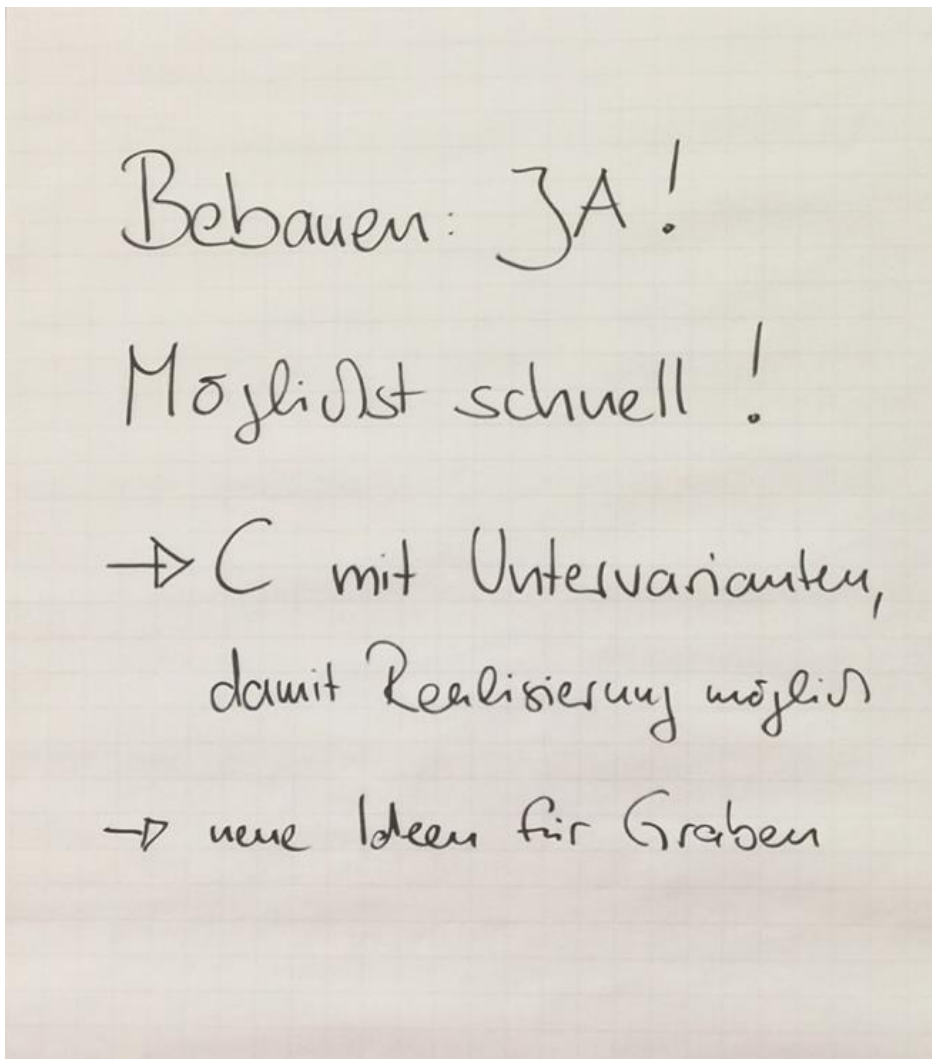 Bebauen: JA!
Möglichst schnell!
→ C mit Untervarianten,
damit Realisierung möglich
→ neue Ideen für Graben